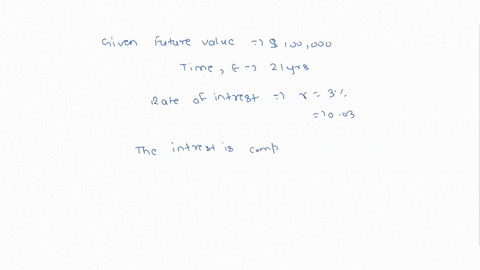 Given Future value => $ 100,000
Time, t => 21yrs
Rate of intrest => r = 3%
=> 0.03
The intrest is comp